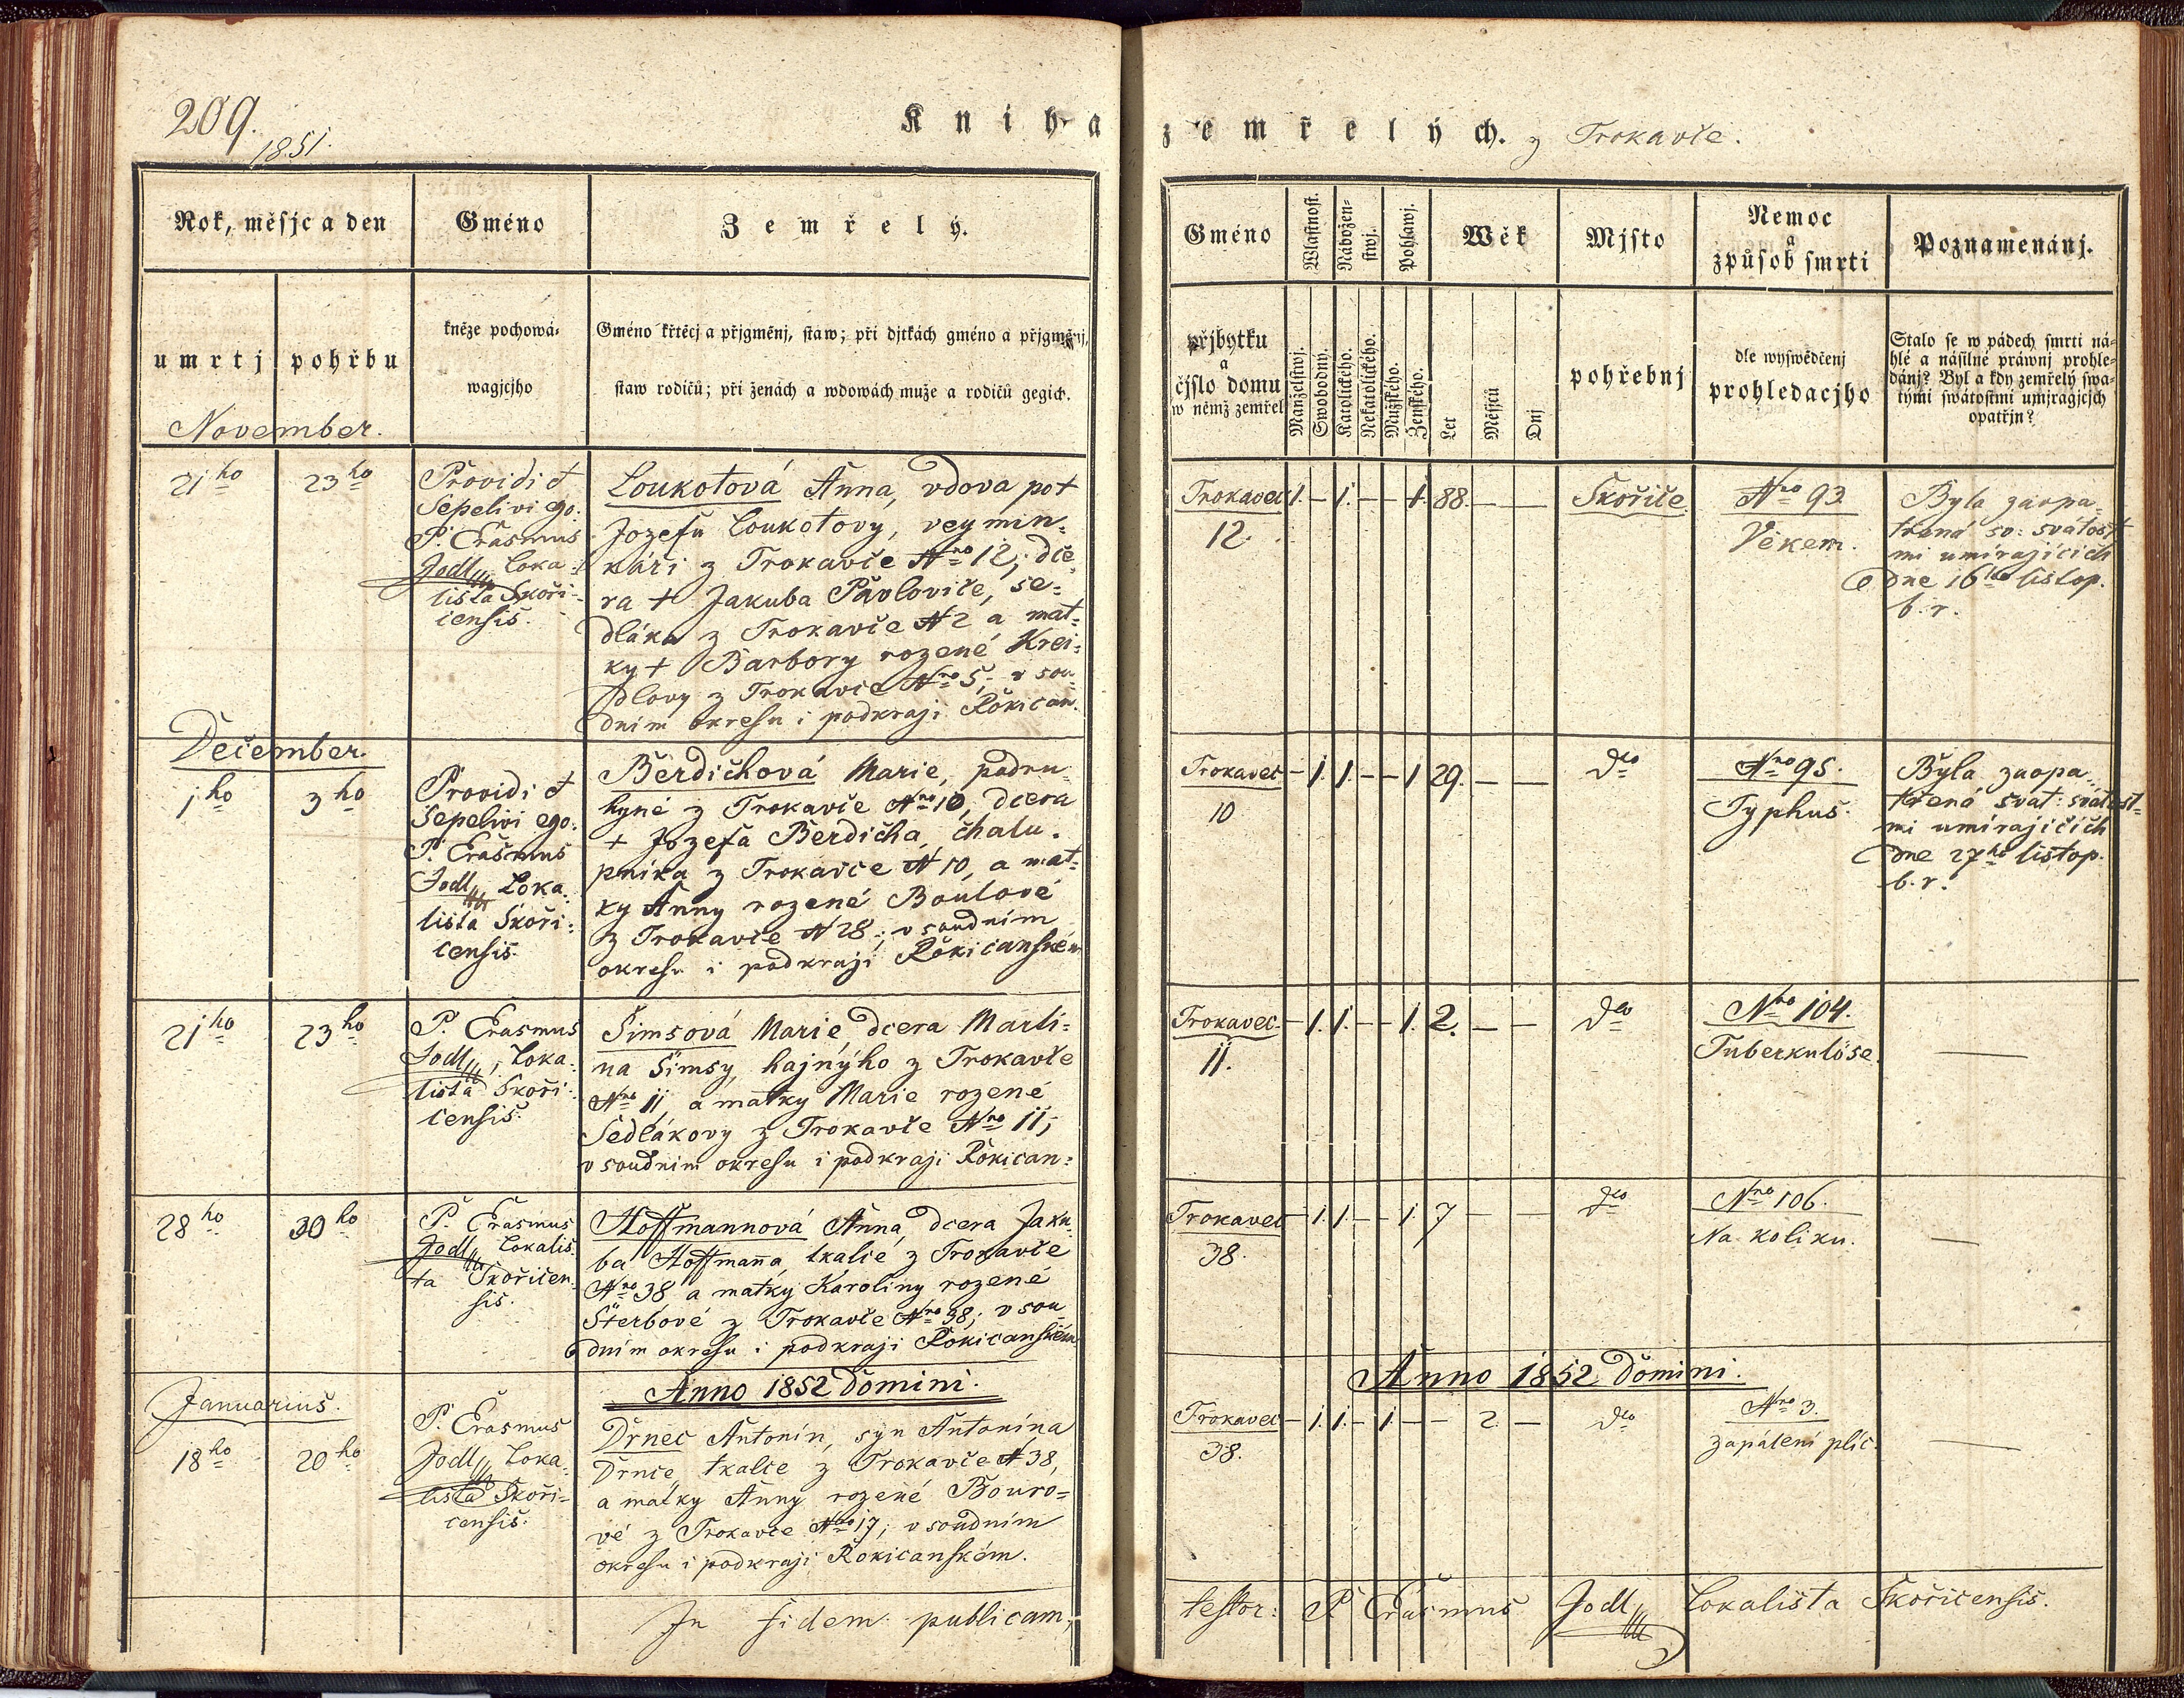 209.
1851.
Kniha
Rok, měsjc a den
Gméno
Zemřelý.
umrtj
pohřbu
kněze pochowá-
wagjcjho
Gméno křtěcj a přjgměnj, staw; při djtkách gméno a přjgměnj,
staw rodičů; při ženách a wdowách muže a rodičů gegich.
November.
21ho
23ho
Providi et
Sepelivi ego.
P. Erasmus
Jodl, Loka-
lista Skoři-
censis.
Loukotová Anna, vdova po +
Jozefu Loukotovy, veymin-
káři z Trokavče Nro 12, dce-
ra + Jakuba Pavloviče, se-
dláka z Trokavče N 2 a mat-
ky + Barbory rozené Krei-
dlovy z Trokavče Nro 5; v sou-
dním okresu i podkraji Rokican.
December.
1ho
3ho
Providi et
Sepelivi ego.
P. Erasmus
Jodl, Loka-
lista Skoři-
censis.
Berdichová Marie, podru-
hyně z Trokavče Nro 10, dcera
+ Jozefa Berdicha, chalu-
pníka z Trokavče N 10, a mat-
ky Anny rozené Boulové
z Trokavče N 28; v soudním
okresu i podkraji Rokicanském
21ho
23ho
P. Erasmus
Jodl, Loka-
lista Skoři-
censis.
Šimsová Marie, dcera Marti-
na Šimsy, hajnýho z Trokavče
Nro 11, a matky Marie rozené
Sedlákovy z Trokavče Nro 11;
v soudním okresu i podkraji Rokican:
28ho
30ho
P. Erasmus
Jodl, Lokalis-
ta Skořicen-
sis.
Hoffmannová Anna, dcera Jaku-
ba Hoffmanna, tkalce z Trokavče
Nro 38 a matky Karoliny rozené
Šterbové z Trokavče Nro 38; v sou-
dním okresu i podkraji Rokicanském
Anno 1852 Domini.
Januarius.
18ho
20ho
P. Erasmus
Jodl, Loka-
lista Skoři-
censis.
Drnec Antonín, syn Antonína
Drnce, tkalce z Trokavče N 38,
a matky Anny rozené Bouro-
vé z Trokavče Nro 17; v soudním
okresu i podkraji Rokicanském.
In fidem publicam,
zemřelých. z Trokavče.
Gméno
Wlastnost.
Nábožen-
stwj.
Pohlawj.
Wěk
Mjsto
Nemoc
a
způsob smrti
Poznamenánj.
přjbytku
a
čjslo domu
w němž zemřel
Manželstwj.
Swobodný.
Katolického.
Nekatolického.
Mužského.
Ženského.
Let
Měsjců
Dnj
pohřebnj
dle wyswědčenj
prohledacjho
Stalo se w pádech smrti ná-
hlé a násilné práwnj prohle-
dánj? Byl a kdy zemřelý swa-
tými swátostmi umjragjcjch
opatřjn?
Trokavec 1. – 1. – – 1. 88. – – Skořice. Nro 93.
12.
Věkem.
Byla zaopa-
třená sv: svátost-
mi umírajících
dne 16ho listop.
b. r.
Trokavec – 1. 1. – – 1 29. – – dto Nro 95.
10
Typhus.
Byla zaopa-
třená svat: svátost-
mi umírajících
dne 27ho listop.
b. r.
Trokavec – 1. 1. – – 1. 2. – – dto Nro 104.
11.
Tuberkulóse.
—
Trokavec – 1. 1. – – 1. 7 – – dto Nro 106.
38.
Na koliku.
—
Anno 1852 Domini.
Trokavec – 1. 1. – 1. – – 2. – dto Nro 3.
38.
zapálení plic.
—
testor: P. Erasmus Jodl Lokalista Skořicensis.